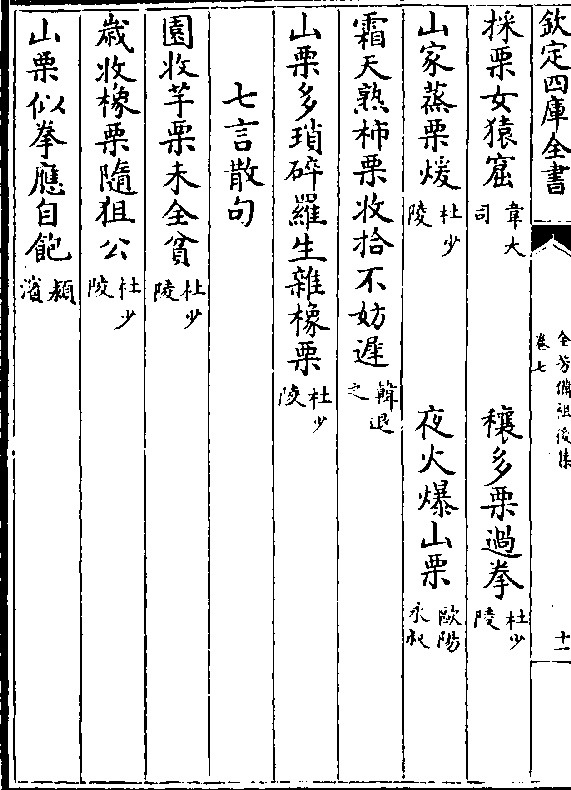 欽定四庫全書
全芳備祖後集
卷七
十一
採栗女猿窟 韋大司 穰多栗過拳 杜少陵
山家蒸栗煖 杜少陵 夜火爆山栗 歐陽永叔
霜天熟柿栗收拾不妨遲 韓退之
山栗多瑣碎羅生雜橡栗 杜少陵
七言散句
園收芋栗未全貧 杜少陵
嵗收橡栗隨狙公 杜少陵
山栗似拳應自飽 潁濱